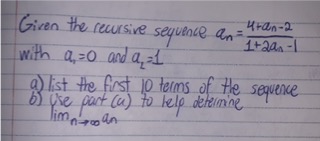 Given the recursive sequence aₙ = 4+aₙ-2 / 1+2aₙ-1
with a₁=0 and a₂=1
a) list the first 10 terms of the sequence
b) Use part (a) to help determine
lim n→∞ aₙ